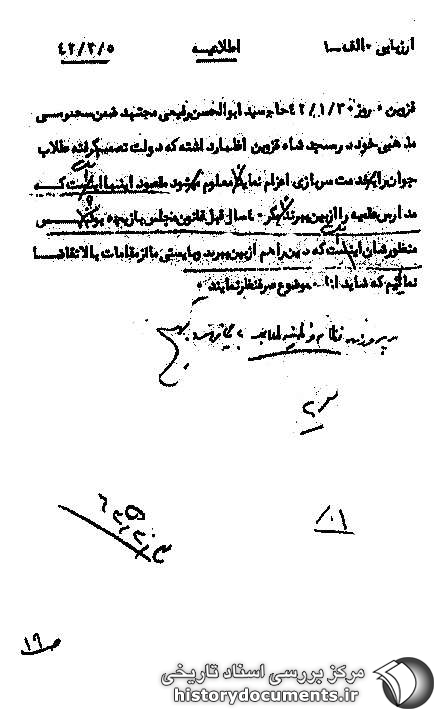 ارزیابی - الف - ۱ اطلاعیه ۴۲/۲/۵
قزوین - روز ۴۲/۱/۳۰ حاج سید ابوالحسن رفیعی مجتهد ضمن سخنرانی
مذهبی خود در مسجد شاه قزوین اظهار داشته که دولت تصمیم گرفته طلاب
جوان را بخدمت سربازی اعزام نماید معلوم میشود مقصود اینها این است که
مدارس علمیه را از بین ببرند مگر ۴۰ سال قبل قانون مجلس بازیچه بود
منظورشان اینست که دین را هم از بین ببرند و بایستی ما از مقامات بالا تقاضا
نمائیم که شاید از این موضوع صرفنظر نمایند
در پرونده نظام وظیفه طلاب بایگانی شود
۸/۱
۱۹
مرکز بررسی اسناد تاریخی
historydocuments.ir